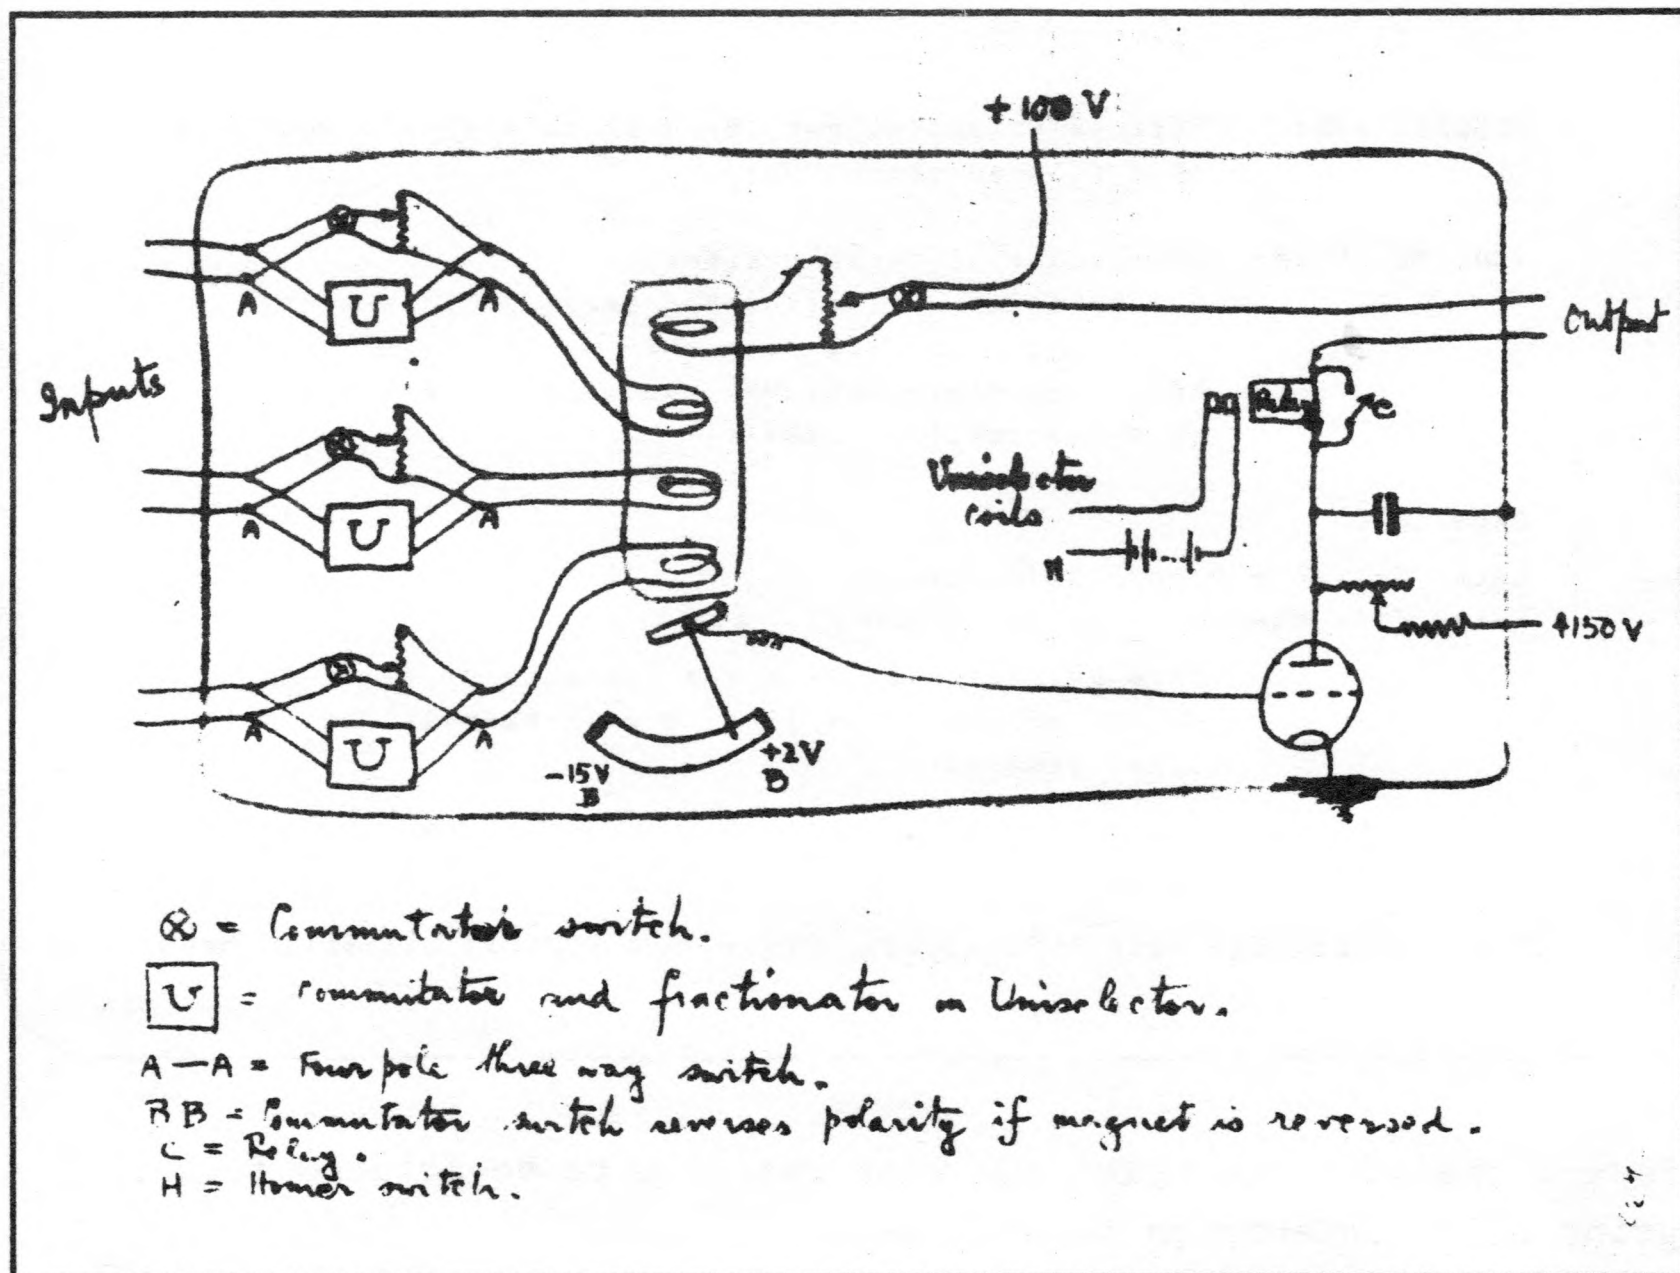 + 100 V
Inputs
Output
U
A
A
U
A
A
U
A
A
Relay
C
Uniselector
coils
H
+150 V
-15V
B
+2V
B
⊗ = Commutator switch.
U = commutator and fractionator on Uniselector.
A — A = Four pole three way switch.
BB = Commutator switch reverses polarity if magnet is reversed.
C = Relay.
H = Homer switch.